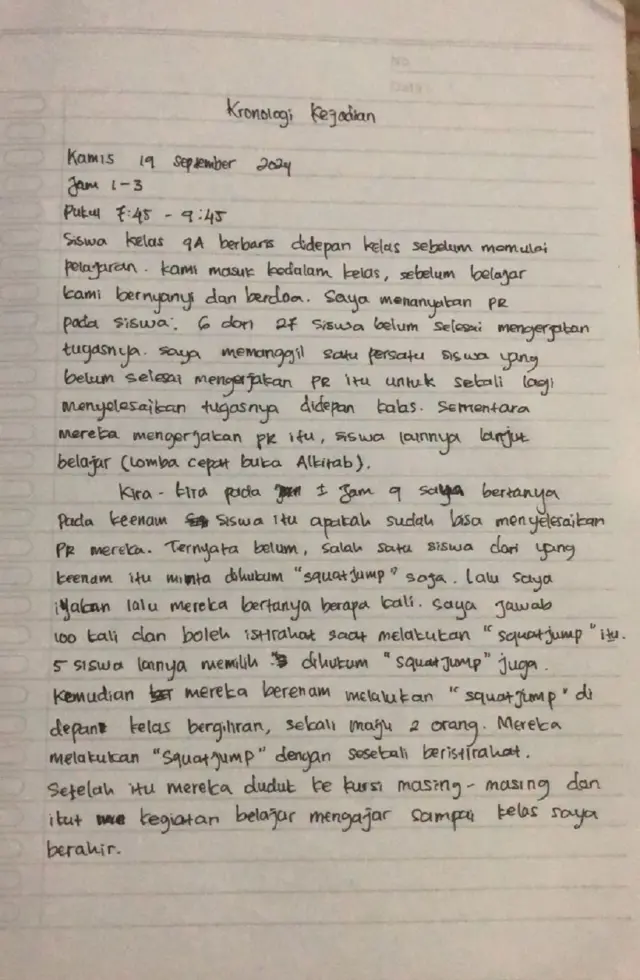 Kronologi Kejadian
Kamis 19 September 2024
Jam 1-3
Pukul 7:45 - 9:45
Siswa kelas 9A berbaris didepan kelas sebelum memulai
pelajaran. Kami masuk kedalam kelas, sebelum belajar
kami bernyanyi dan berdoa. Saya menanyakan PR
pada siswa. 6 dari 27 siswa belum selesai mengerjakan
tugasnya. saya memanggil satu persatu siswa yang
belum selesai mengerjakan PR itu untuk sekali lagi
menyelesaikan tugasnya didepan kalas. Sementara
mereka mengerjakan PR itu, siswa lainnya lanjut
belajar (lomba cepat buka Alkitab).
Kira-kira pada ± Jam 9 saya bertanya
pada keenam siswa itu apakah sudah bisa menyelesaikan
PR mereka. Ternyata belum, salah satu siswa dari yang
keenam itu minta dihukum "squatjump" saja. Lalu saya
iyakan lalu mereka bertanya berapa kali. saya jawab
100 kali dan boleh istirahat saat melakukan "squatjump" itu.
5 siswa lainnya memilih dihukum "squatjump" juga.
Kemudian mereka berenam melakukan "squatjump" di
depan kelas bergiliran, sekali maju 2 orang. Mereka
melakukan "Squatjump" dengan sesekali beristirahat.
Setelah itu mereka duduk ke kursi masing-masing dan
ikut kegiatan belajar mengajar sampai kelas saya
berahir.